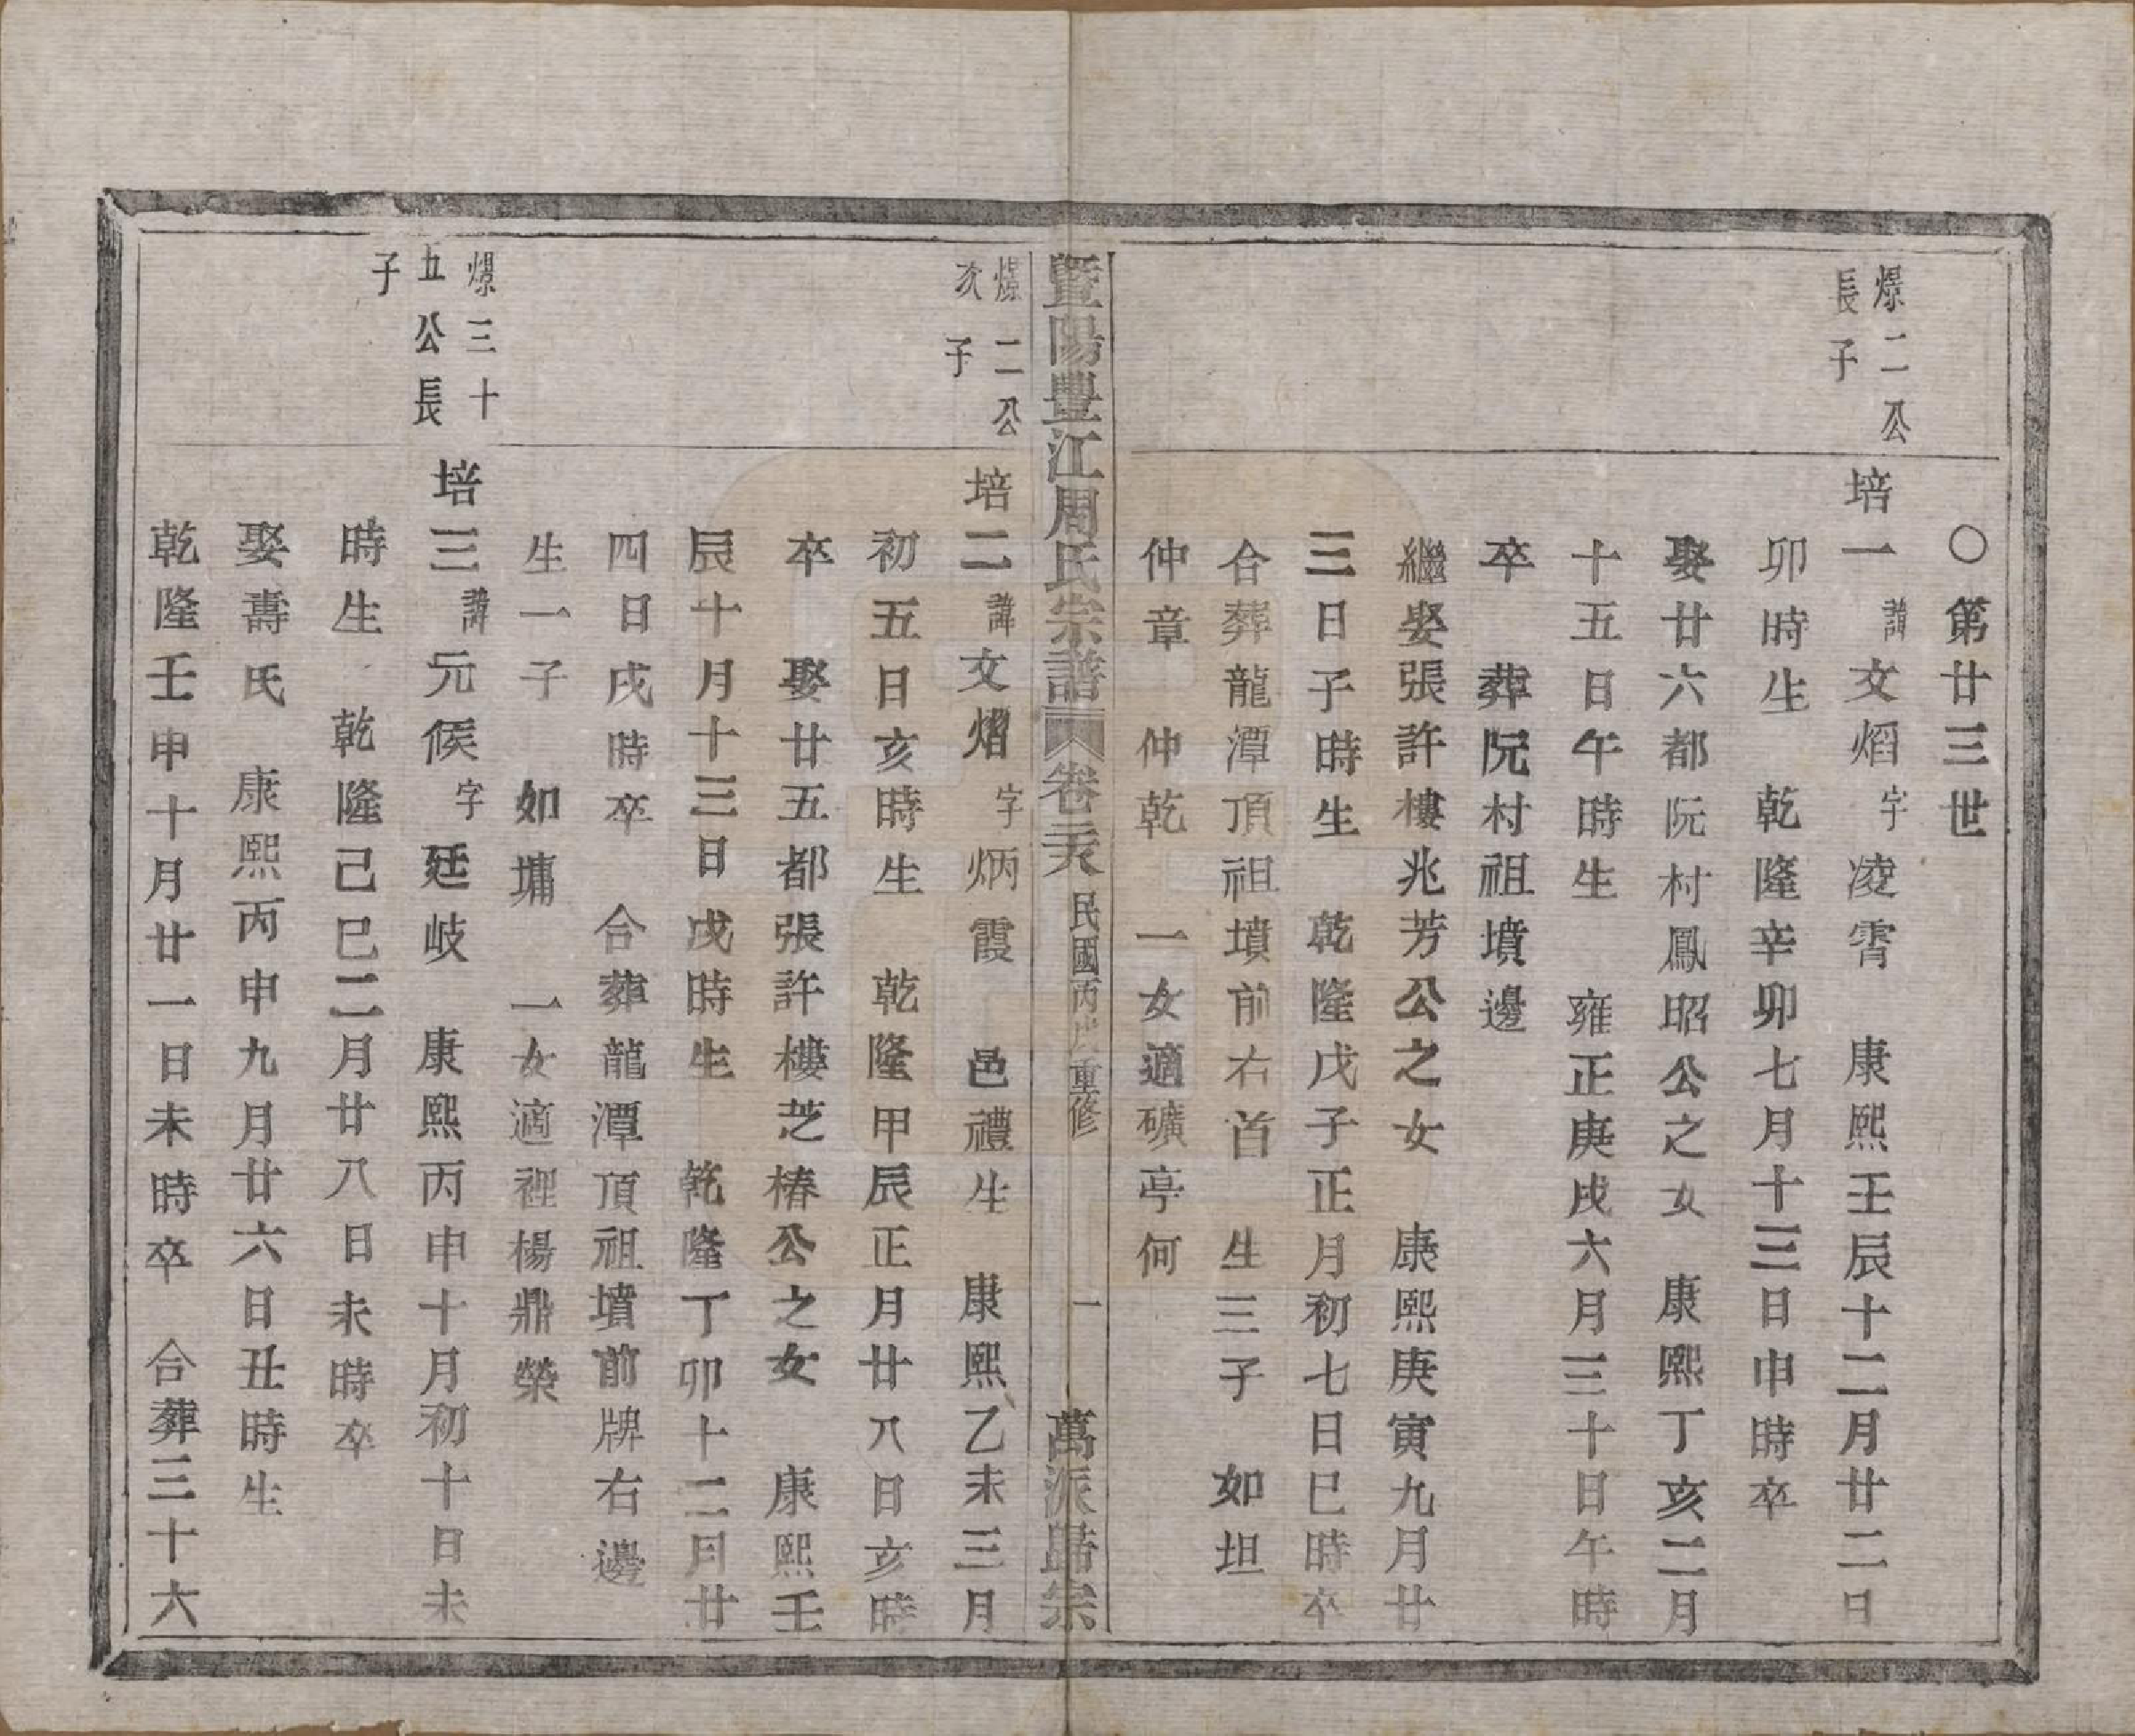 〇第廿三世
爆二公
長子
培一諱文熖字凌霄 康熙壬辰十二月廿二日
卯時生 乾隆辛卯七月十三日申時卒
娶廿六都阮村鳳昭公之女 康熙丁亥二月
十五日午時生 雍正庚戌六月三十日午時
卒 葬阮村祖墳邊
繼娶張許樓兆芳公之女 康熙庚寅九月廿
三日子時生 乾隆戊子正月初七日巳時卒
合葬龍潭頂祖墳前右首 生三子 如坦
仲章 仲乾 一女適礦亭何
暨陽豐江周氏宗譜 卷二六 民國丙戌重修 一 萬派歸宗
爆二公
次子
培二諱文熠字炳霞 邑禮生 康熙乙未三月
初五日亥時生 乾隆甲辰正月廿八日亥時
卒 娶廿五都張許樓芝椿公之女 康熙壬
辰十月十三日戌時生 乾隆丁卯十二月廿
四日戌時卒 合葬龍潭頂祖墳前牌右邊
生一子 如墉 一女適裡楊鼎榮
爆三十
五公長
子
培三諱元候字廷岐 康熙丙申十月初十日未
時生 乾隆己巳二月廿八日未時卒
娶壽氏 康熙丙申九月廿六日丑時生
乾隆壬申十月廿一日未時卒 合葬三十六